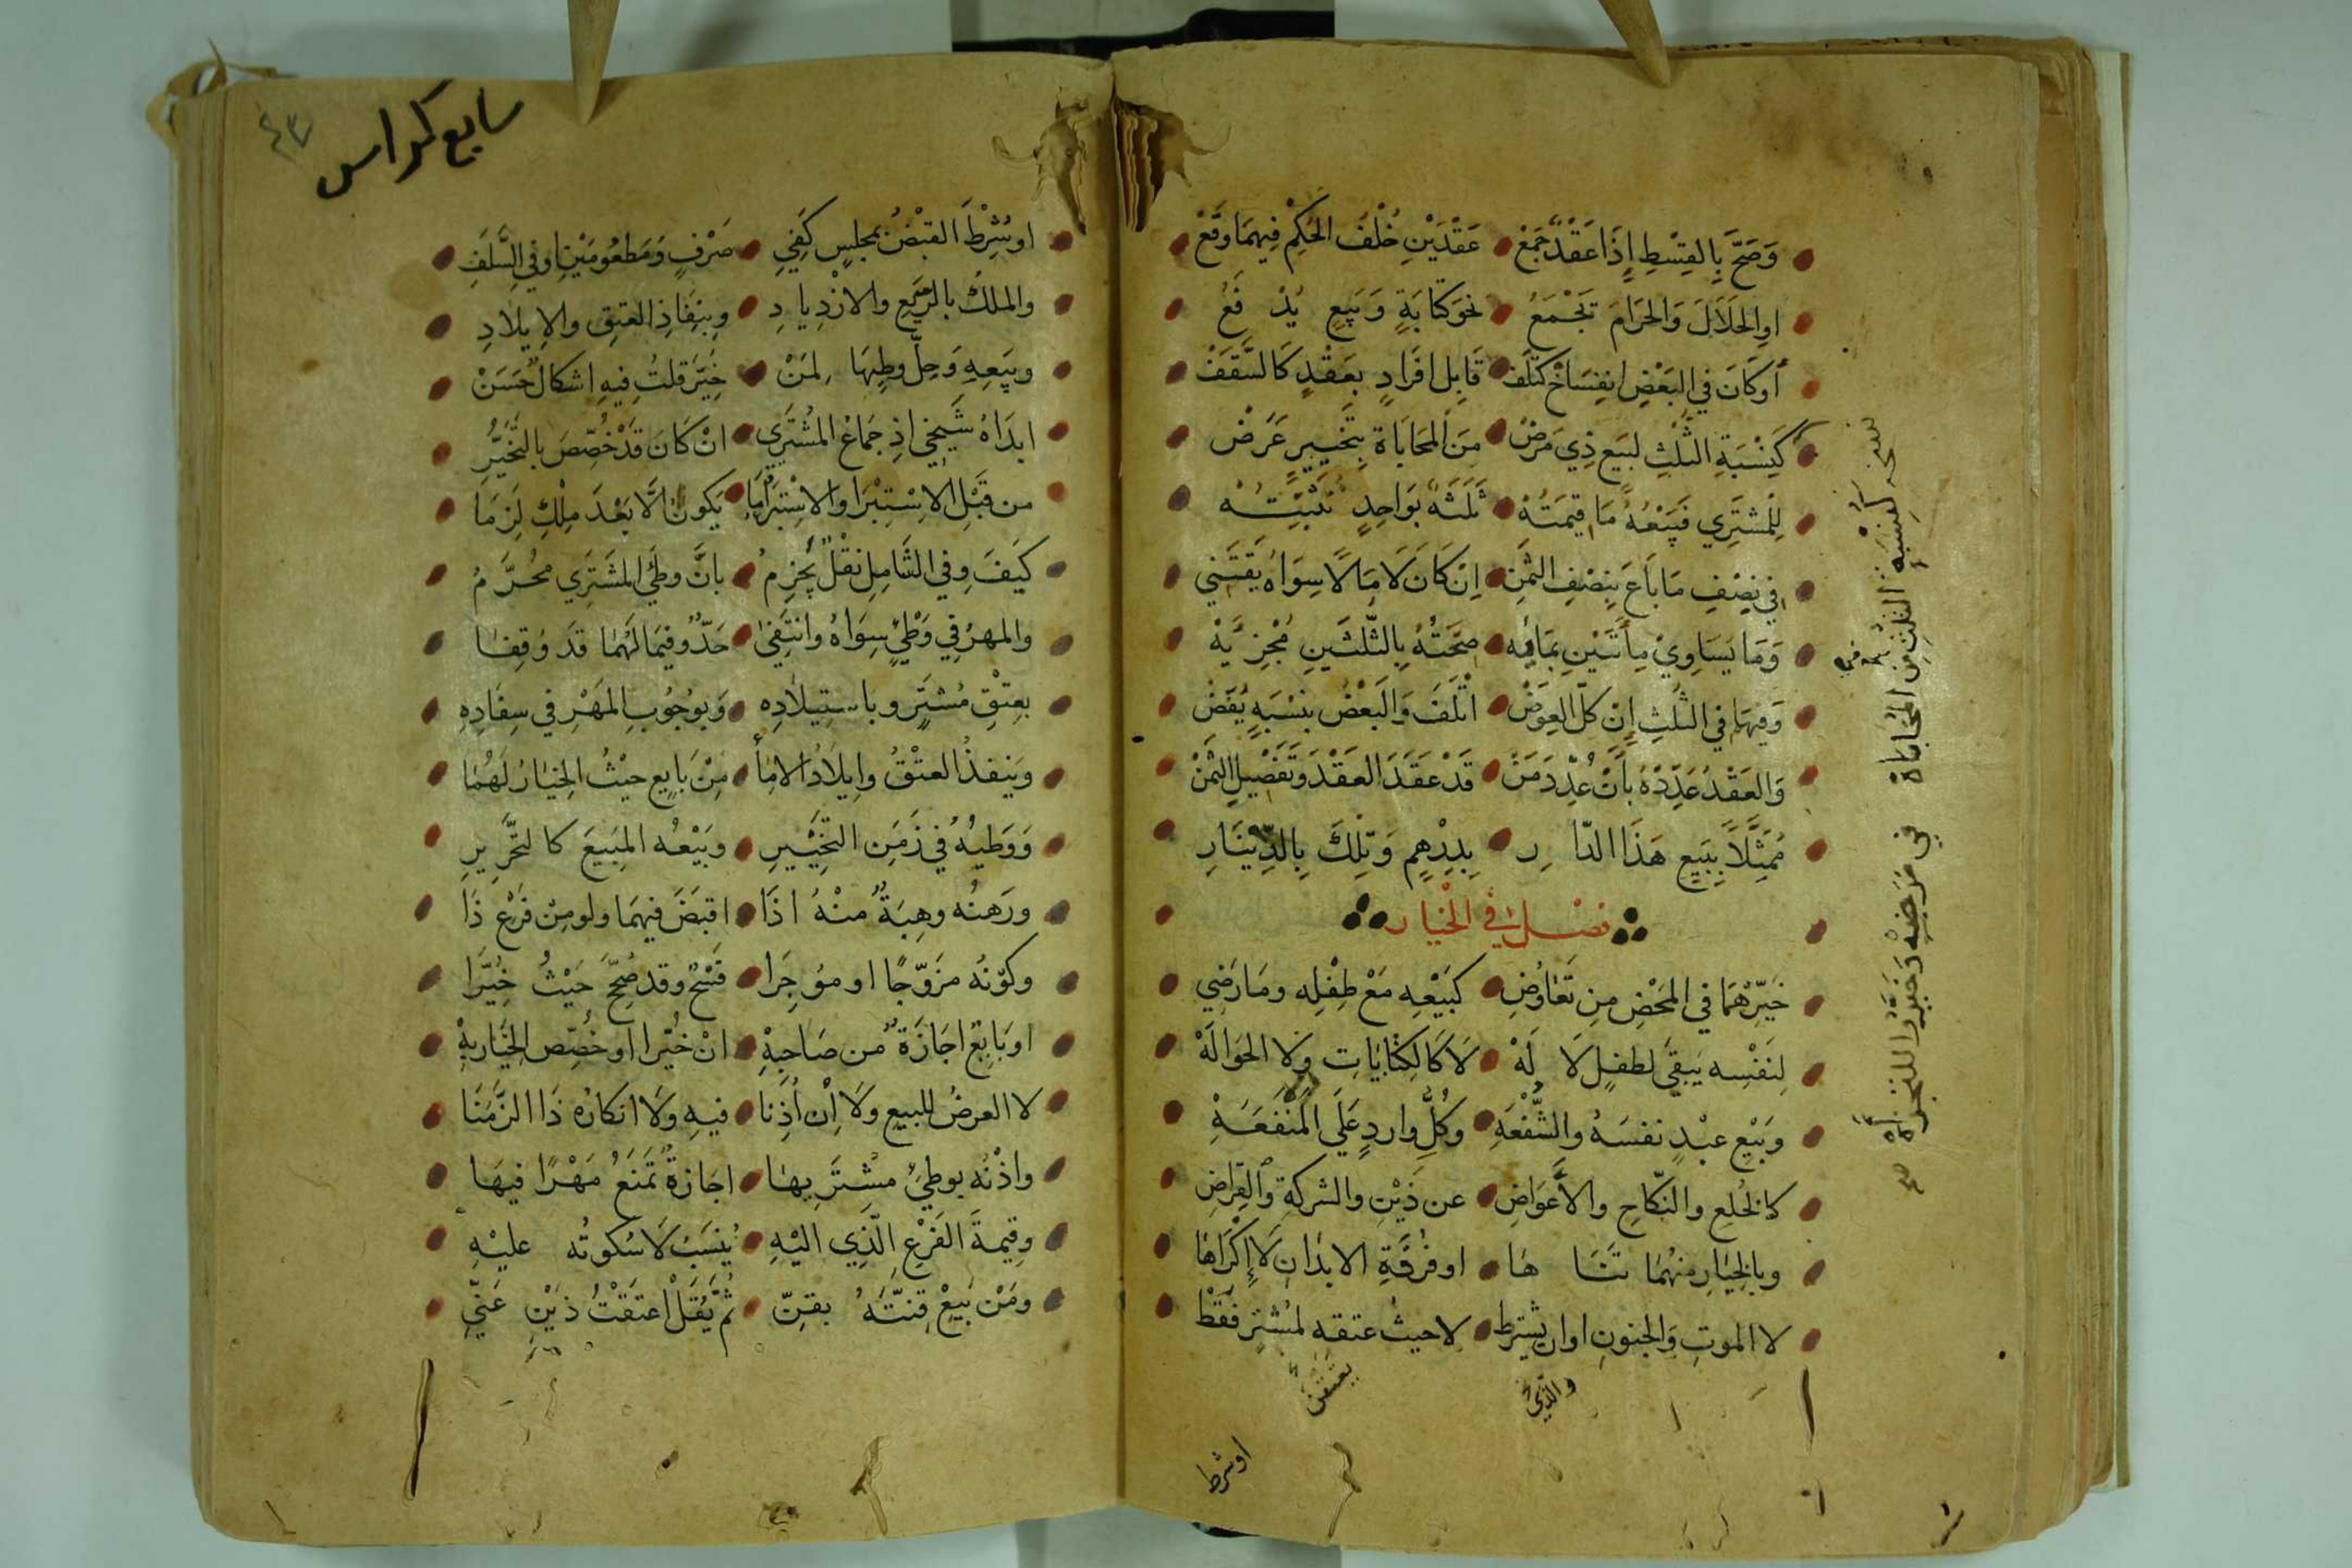 وَصَحَّ بِالقِسْطِ إِذَا عَقْدٌ جَمَعْ عَقْدَيْنِ خُلْفُ الحُكْمِ فِيهِمَا وَقَعْ
اوِ الحَلَالَ وَالحَرَامَ تَجْمَعُ نحوَ كتَابَةٍ وَبَيعٍ يُدْفَعُ
أوكَانَ في البَعْضِ انفِسَاخٌ كتَلَفْ قَابِلِ افَرادٍ بعَقْدٍ كَالسَّقَفْ
كَنِسْبَةِ الثلثِ لبَيعِ ذِي مَرَضْ مِنَ المحَابَاة بتَخييرٍ عَرَضْ
لِلمُشتَرِي فَبَيْعُهُ مَا قِيمَتُهْ ثَلَثَةٌ بوَاحِدٍ نُثْبِتُهْ
في نِصْفِ مَا بَاعَ بِنصْفِ الثمَنِ اِنْ كَانَ لَا مَالًا سِوَاهُ يَقْتَنِي
وَمَا يُسَاوِيْ مِأَتَيْنِ بمَائِه صِحَّتُهُ بِالثّلثَينِ مُجْزِيَهْ
وَفيهَا في الثلثِ إِنْ كلَّ العِوَضْ اتْلَفَ وَالبَعْضُ بنِسْبَةٍ يُفَضْ
وَالعَقْدُ عَدِّدْهُ بأنْ عُدِّدَ مَنْ قَدْ عَقَدَ العَقْدَ وَتَفْصِيلِ الثمَنْ
مُمَثِّلاً بِبَيعِ هَذَا الدّارِ بِدِرْهِمٍ وَتِلكَ بِالدِّيْنَارِ
فصل في الخيار
خَيِّرْهُمَا في المَحْضِ مِن تَعَاوُضِ كبَيْعِهِ مَعْ طِفْلِه ومَا رَضِي
لِنَفْسِه يَبقى لطفلٍ لَا لَهْ لَا كَالكِتَابَاتِ وَلَا الحَوَالَهْ
وَبَيْعِ عبْدٍ نفسَهُ والشُّفْعَهِ وكُلِّ واردٍ عَلَى المَنْفَعَهِ
كالخُلعِ والنّكَاحِ والأَعوَاضِ عن ذَيْنِ والشركةِ والقِرَاضِ
وبالخِيَارِ منهُمَا تَنَاهَا او فُرْقَةِ الابدَانِ لَا إِكْرَاهَا
لا الموتِ وَالجنونِ اوان يشترط لا حيث عتقه لمُشترٍ فَقَطْ
والّذي
يعتقن
اوشرط
نسخة كنسبة الثلث من المحاباة في مَرَضِهْ مُخَيَّرًا للتجزأه
سابع كراس
٤٣
اوشرِطَ القبْضُ بمجلسٍ كَفِي صَرْفٍ وَمَطعُومَيْنِ او في السَّلَفِ
والملكُ بالرَّيعِ والازْدِيادِ وبِنَفَاذِ العتقِ والإيلادِ
وبَيعِهِ وَحِلّ وطِيهَا لمَنْ خُيِّرَ قلتُ فيهِ اشكالٌ حَسَنْ
ابدَاهُ شَيخِي اذِ جمَاعُ المُشْتَرِي انْ كَانَ قدْ خُصِّصَ بالتخَيُّرِ
من قبْلِ الاِسْتِبْرَا والاسْتِبْرَا يَكونُ الَّا بَعْدَ مِلْكٍ لَزِمَا
كيَفَ وفي الشَّامِلِ نقْلٌ يُجْزِمُ بانَّ وطئ المُشتَرِي محُرَّمُ
والمهرُ في وَطْئٍ سِوَاهُ وانتَفىٰ حَدٌّ وفيمَا لَهُمَا قَد وُقِفَا
بعِتْقِ مُشتَرٍ وباستِيلَادِه وَبوُجُوبِ المَهْرِ في سِفَادِه
وَينفذُ العتْقُ وايلَادُ الامَأ مِنْ بَايعٍ حيْثُ الخِيَارُ لَهُمَا
وَوَطيُهُ في زَمَنِ التخْيِيرِ وبَيْعُه المبيعَ كالتحْرِيرِ
ورَهنُه وهِبَةٌ منْهُ اذَا اقبَضَ فيهمَا ولو مِنْ فَرْعِ ذَا
وكَوْنُه مزَوّجًا او موُجِرَا فَسْخٌ وقد صُحِّحَ حَيْثُ خُيِّرَا
او بَايعٌ اجَازَةٌ من صَاحِبِهْ انْ خُيِّرا او خُصِّصَ الخِيَارُ بِهْ
لا العرضُ للبيعِ ولَا اِنْ أُذِنَا فيهِ وَلَا انكارُه ذَا الزَّمَنَا
واذْنُه بوطئ مشْترَيهَا اجَازَةٌ تَمنَعُ مَهْرًا فيهَا
وقيمةَ الفَرْعِ الّذي اليْهِ يُنسَبُ لَا سُكوتُه عليْهِ
ومَنْ يَبعْ قِنّتَهُ بقنِّ ثمَّ يَقُلْ اعتقْتُ ذَيْنِ عَنّي